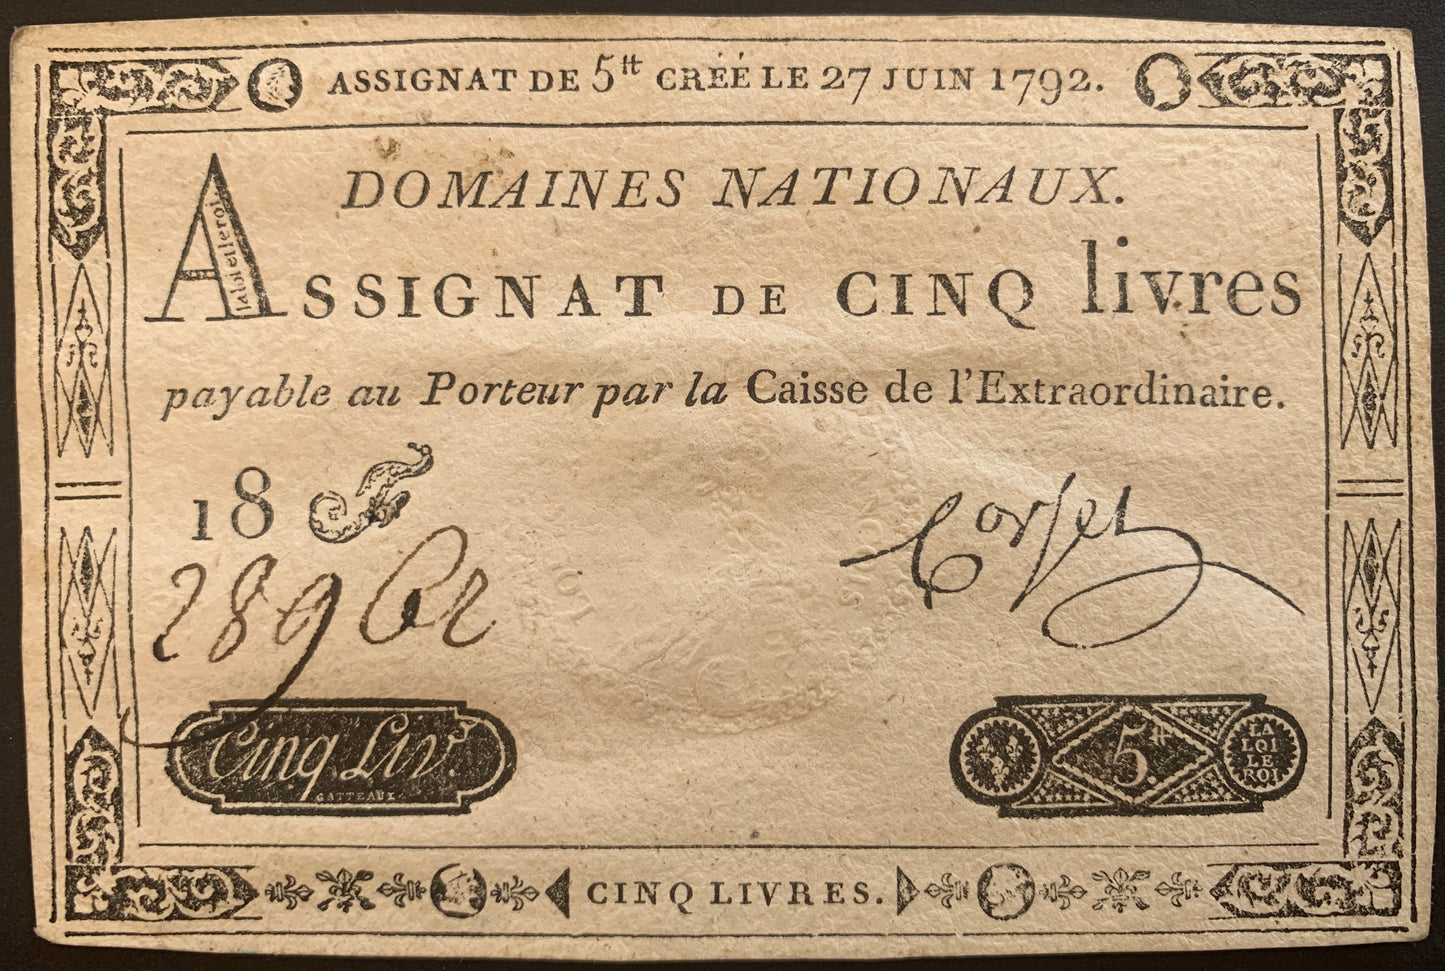 ASSIGNAT DE 5tt CRÉÉ LE 27 JUIN 1792.
DOMAINES NATIONAUX.
ASSIGNAT DE CINQ livres
payable au Porteur par la Caisse de l'Extraordinaire.
18 F
Corsel
Cinq Liv.s
GATTEAUX
5.tt
LA
LOI
LE
ROI
CINQ LIVRES.